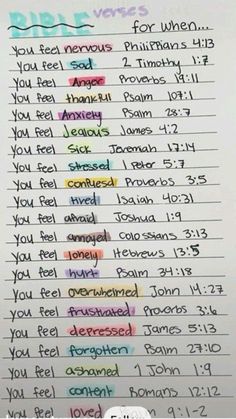 BIBLE verses
for when...
You feel nervous Philippians 4:13
You feel sad 2 Timothy 1:7
You feel Anger Proverbs 19:11
You feel thankful Psalm 107:1
You feel Anxiety Psalm 28:7
You feel Jealous James 4:2
You feel Sick Jeremiah 17:14
You feel stressed 1 Peter 5:7
You feel confuesd Proverbs 3:5
You feel tired Isaiah 40:31
You feel afraid Joshua 1:9
You feel annoyed Colossians 3:13
You feel lonely Hebrews 13:5
You feel hurt Psalm 34:18
You feel overwhelmed John 14:27
You feel frustrated Proverbs 3:6
You feel depressed James 5:13
You feel forgotten Psalm 27:10
You feel ashamed 1 John 1:9
You feel content Romans 12:12
You feel loved 9:1-2